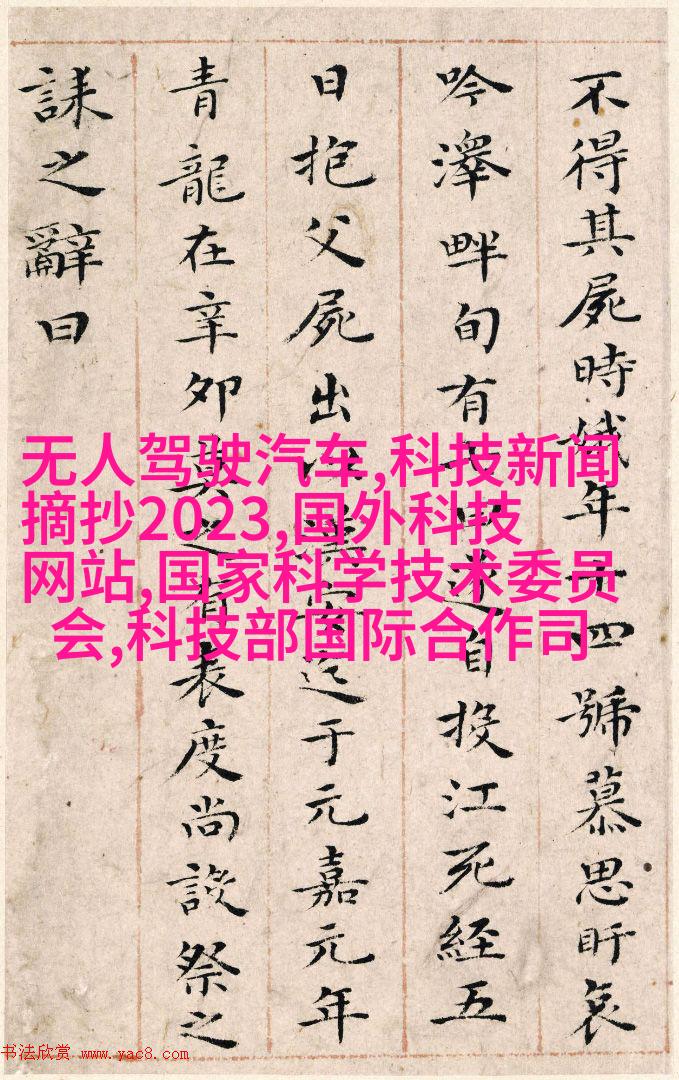 不得其屍時娥年十四號慕思盱哀
吟澤畔旬有遂自投江死經五
日抱父屍出漢安迄于元嘉元年
青龍在辛卯莫之有表度尚設祭之
誄之辭曰
无人驾驶汽车,科技新闻
摘抄2023,国外科技
网站,国家科学技术委员
会,科技部国际合作司
书法欣赏 www.yac8.com